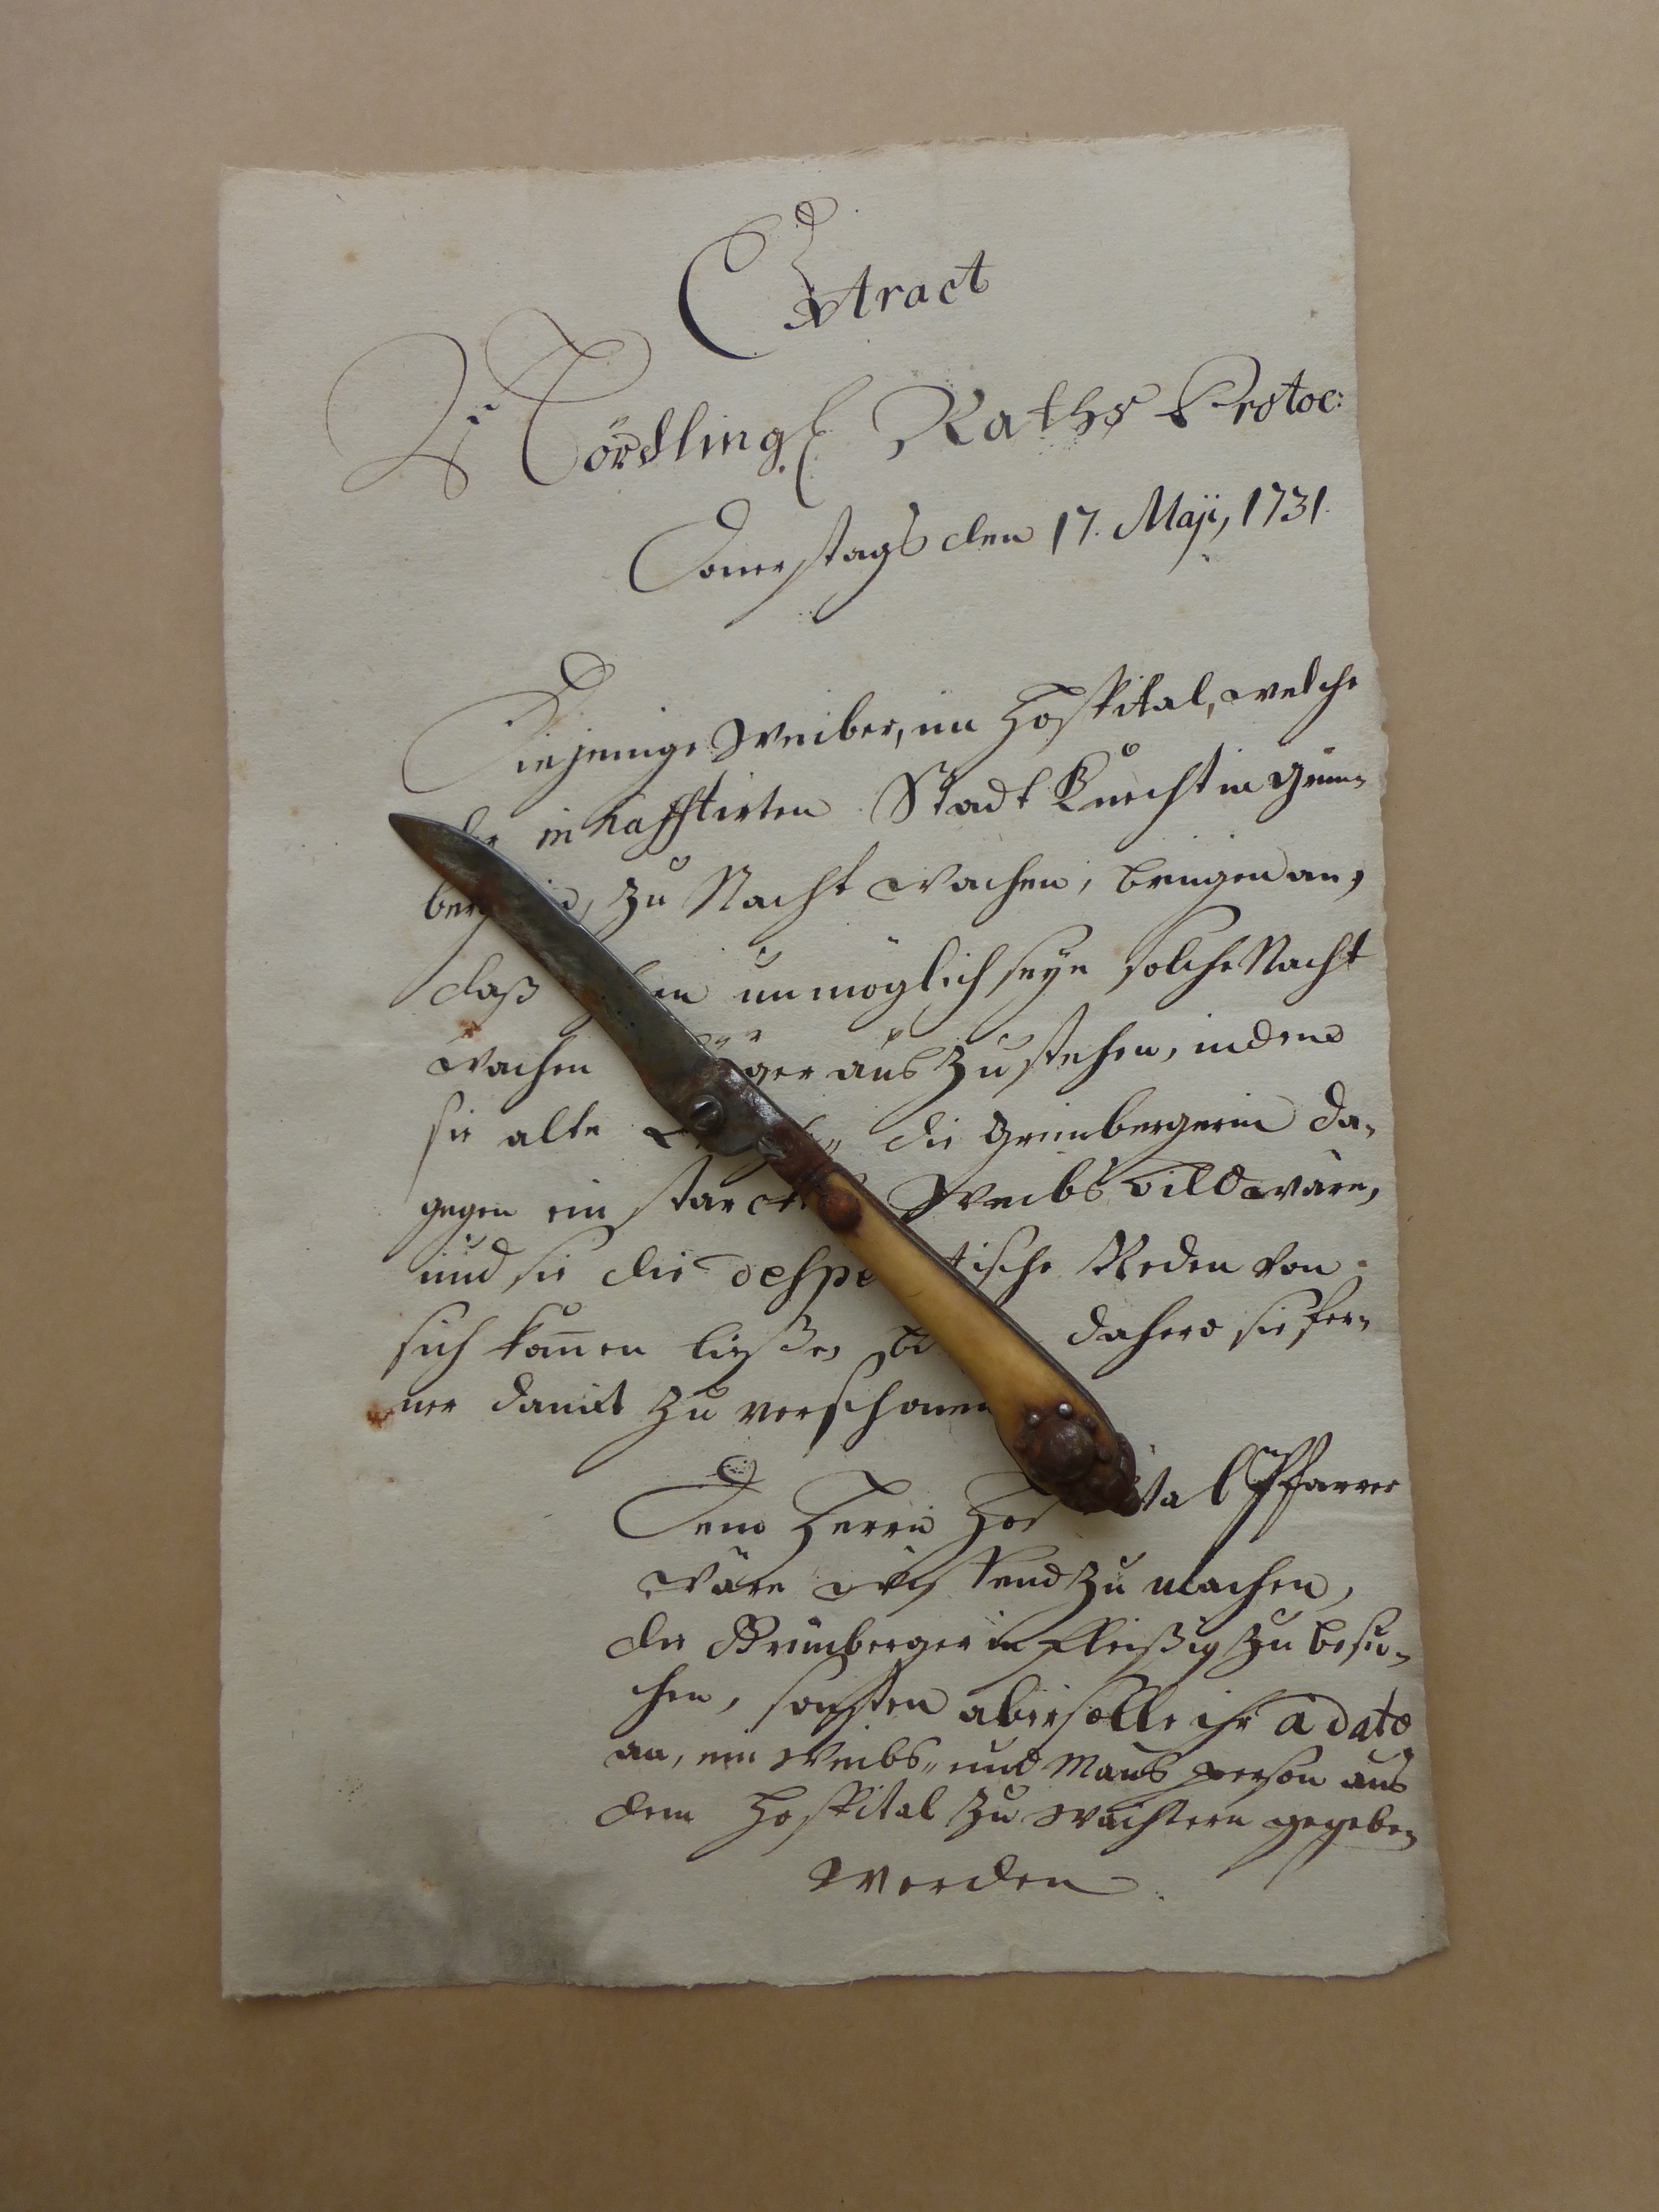 Extract
Nördling. Raths Protoc:
Donerstags den 17. Maji, 1731.
Diejenige Weiber, im Hospital, welche
inhafftirten Stadt Knechtin Grün-
zu Nacht wachen, bringen an,
daß unmöglich seye solche Nacht
wachen auszustehen, indeme
sie alte die Grünbergerin da-
gegen ein Weibsbild wäre,
und sie die Reden von
sich kom̄en ließe, dahero sie fer-
ner damit zu verschonen
Dem Herrn Pfarrer
wäre wißend zu machen,
die Grünbergerin fleißig zu besu-
chen, sonsten aber solle ihr a dato
an, ein Weibs- und Mans person aus
dem Hospital zu Wächtern gegeben
werden.